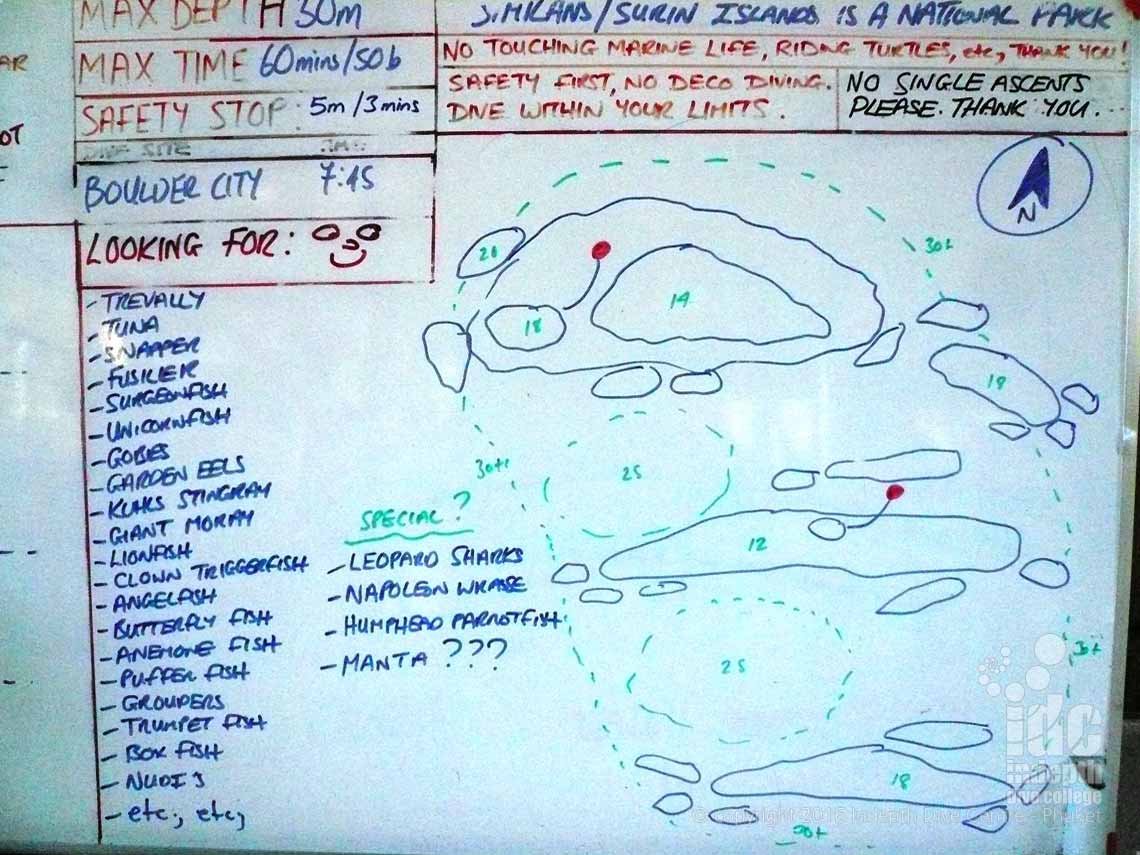 MAX DEPTH 30m
MAX TIME 60mins/50b
SAFETY STOP: 5m/3mins
DIVE SITE
BOULDER CITY 7:45
LOOKING FOR:
- TREVALLY
- TUNA
- SNAPPER
- FUSILIER
- SURGEONFISH
- UNICORNFISH
- GOBIES
- GARDEN EELS
- KUHLS STINGRAY
- GIANT MORAY
- LIONFISH
- CLOWN TRIGGERFISH
- ANGELFISH
- BUTTERFLY FISH
- ANEMONE FISH
- PUFFER FISH
- GROUPERS
- TRUMPET FISH
- BOX FISH
- NUDI'S
- etc., etc;
SPECIAL?
- LEOPARD SHARKS
- NAPOLEON WRASSE
- HUMPHEAD PARROTFISH
- MANTA ???
SIMILANS/SURIN ISLANDS IS A NATIONAL PARK
NO TOUCHING MARINE LIFE, RIDING TURTLES, etc, THANK YOU!
SAFETY FIRST, NO DECO DIVING.
DIVE WITHIN YOUR LIMITS.
NO SINGLE ASCENTS
PLEASE. THANK YOU...
N
20
30+
14
18
18
30+
25
12
25
30+
18
30+
AR
OT
idc
indepth
dive college
© Copyright 2016 Indepth Dive Centre - Phuket